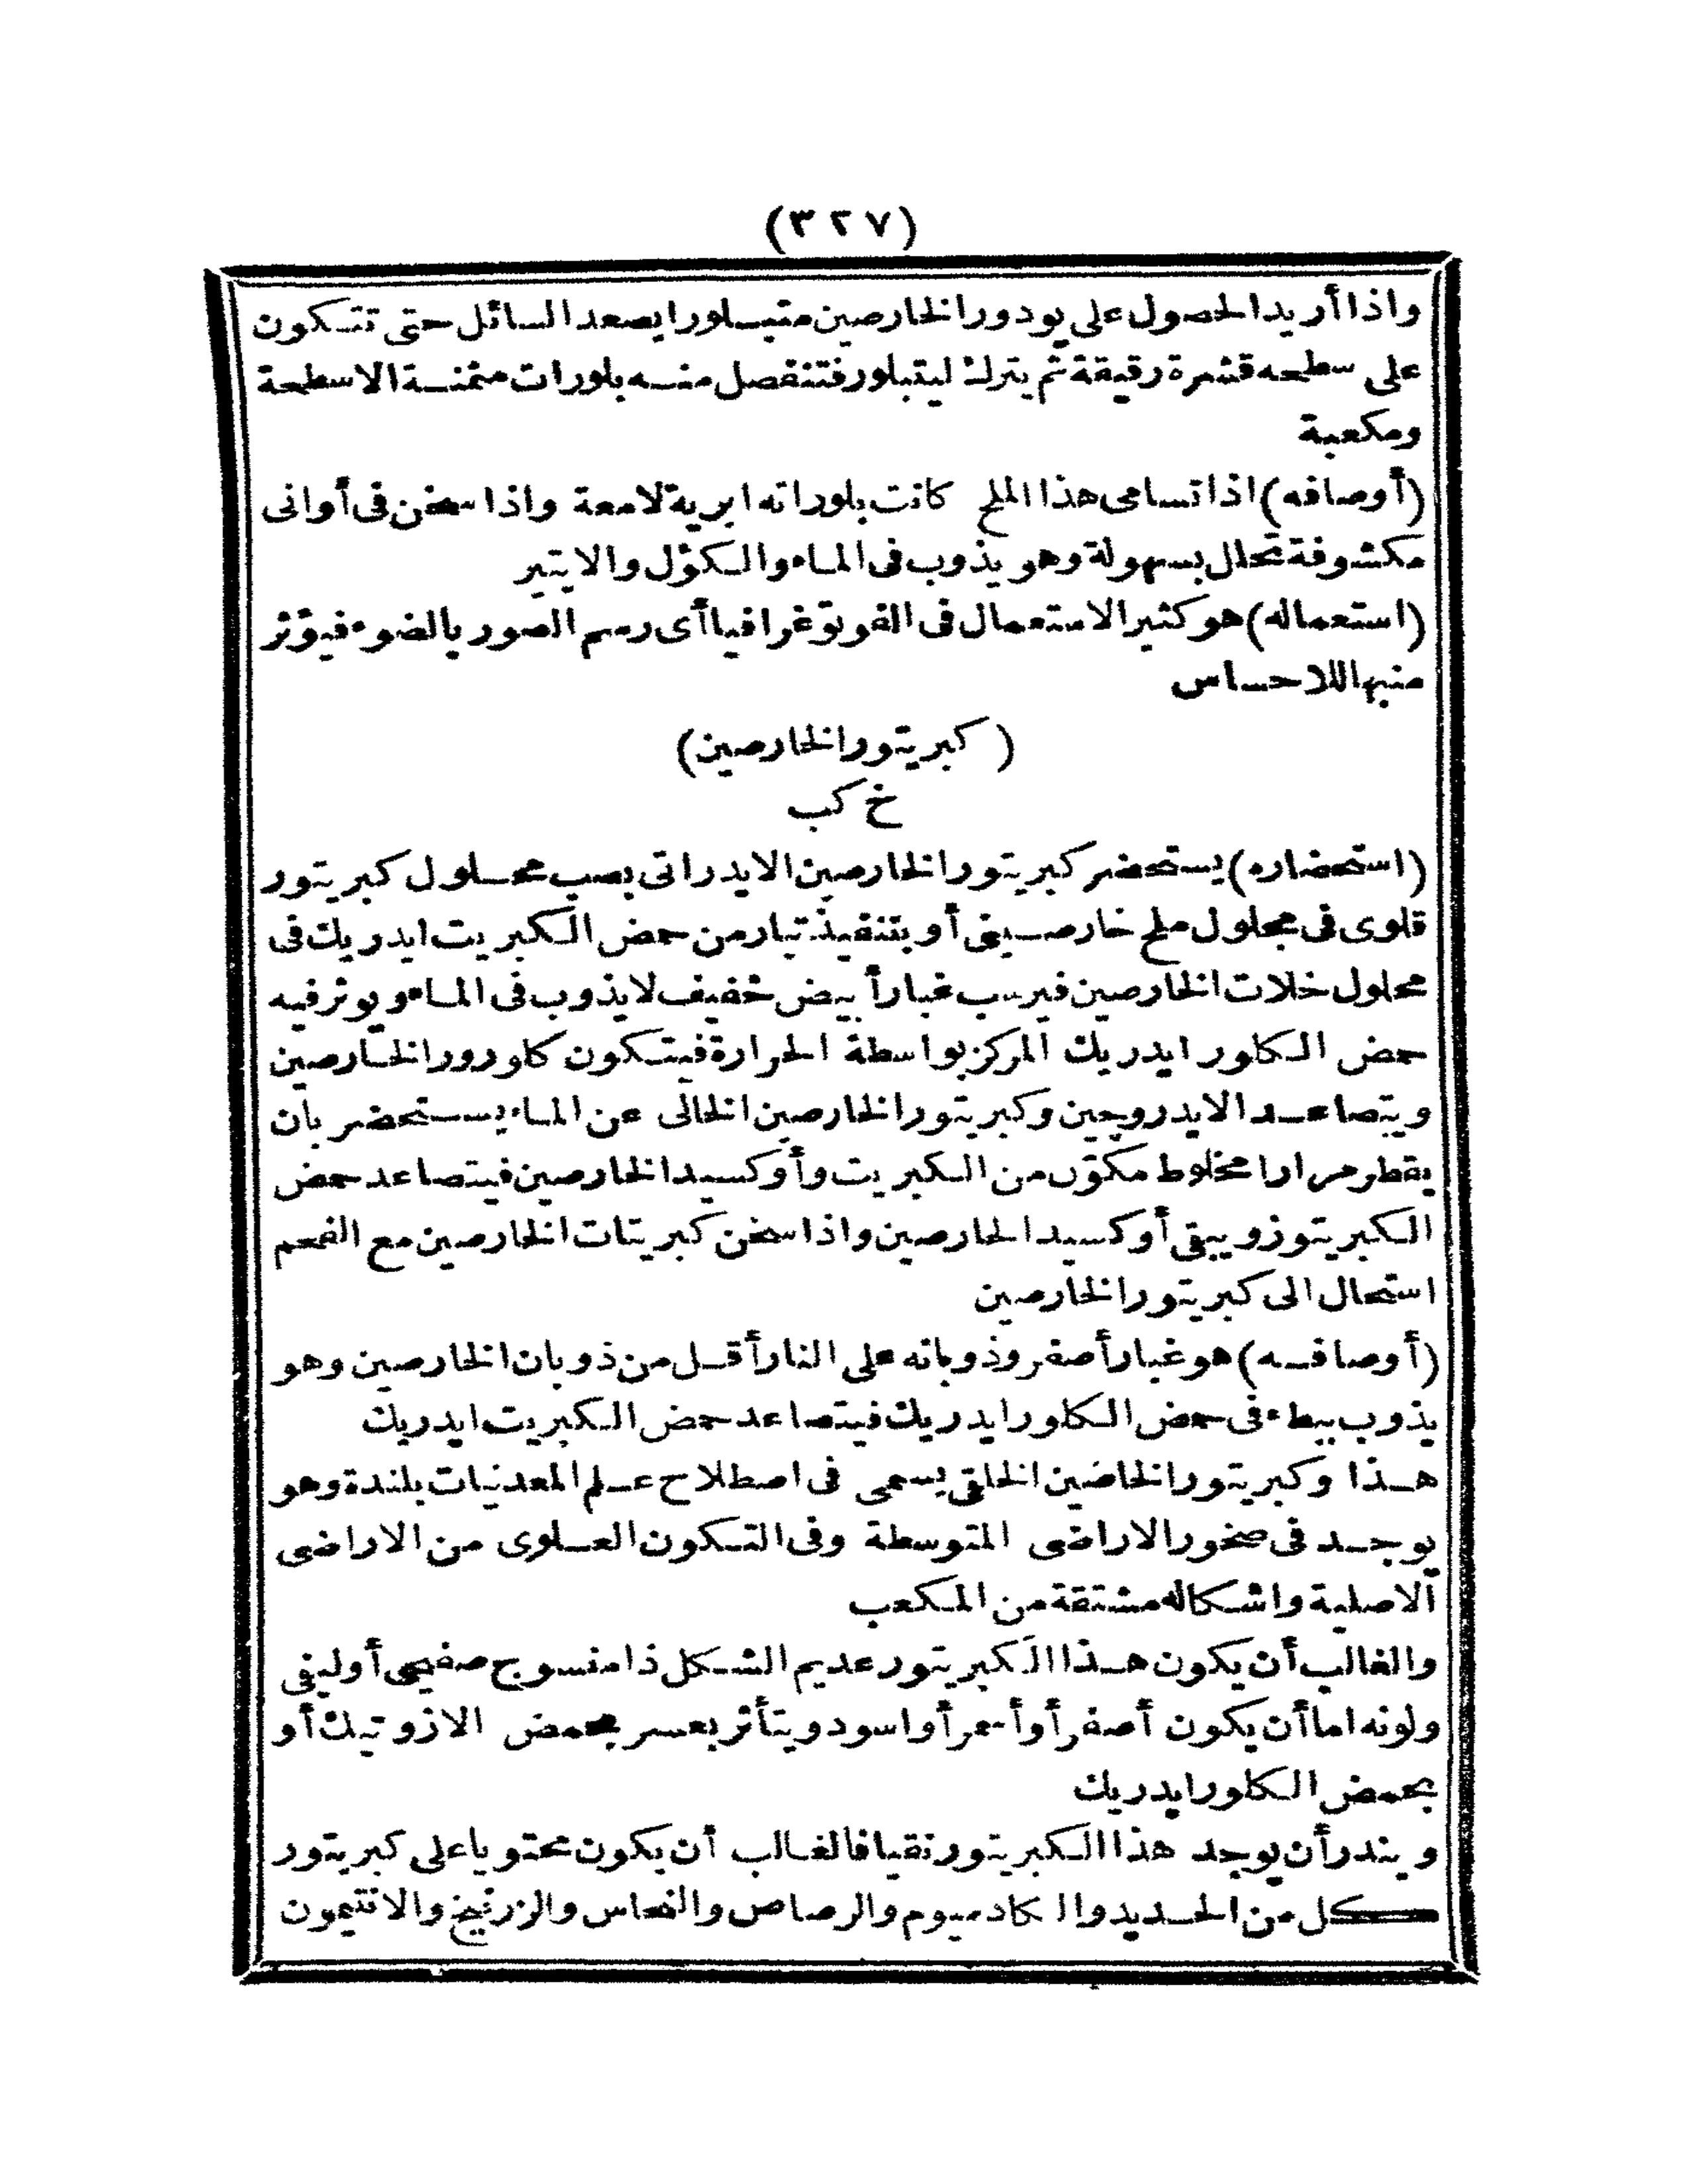 (٣٢٧)
واذا أريد الحصول على يودور الخارصين متبلورا يصعد السائل حتى تتكون
على سطحه قشرة رقيقة ثم يترك ليتبلور فتنفصل منه بلورات مثمنة الاسطحة
ومكعبة
(أوصافه) اذا تسامى هذا الملح كانت بلوراته ابرية لامعة واذا سخن فى أوانى
مكشوفة تحلل بسهولة وهو يذوب فى الماء والكؤل والايتير
(استعماله) هو كثير الاستعمال فى الفوتوغرافيا أى رسم الصور بالضوء فيؤثر
منبها للاحساس
(كبريتور الخارصين)
خ كب
(استحضاره) يستحضر كبريتور الخارصين الايدراتى بصب محلول كبريتور
قلوى فى محلول ملح خارصينى أو بتنفيذ تيار من حمض الكبريت ايدريك فى
محلول خلات الخارصين فيرسب غبارا أبيض خفيف لا يذوب فى الماء ويوثر فيه
حمض الكلور ايدريك المركز بواسطة الحرارة فيتكون كلورور الخارصين
ويتصاعد الايدروجين وكبريتور الخارصين الخالى عن الماء يستحضر بان
يقطر مرارا مخلوط مكوّن من الكبريت وأوكسيد الخارصين فيتصاعد حمض
الكبريتوز ويبقى أوكسيد الخارصين واذا سخن كبريتات الخارصين مع الفحم
استحال الى كبريتور الخارصين
(أوصافه) هو غبار أصفر وذوبانه على النار أقل من ذوبان الخارصين وهو
يذوب ببطء فى حمض الكلور ايدريك فيتصاعد حمض الكبريت ايدريك
هذا وكبريتور الخاضين الخلقى يسمى فى اصطلاح علم المعدنيات بلندة وهو
يوجد فى صخور الاراضى المتوسطة وفى التكون العلوى من الاراضى
الاصلية واشكاله مشتقة من المكعب
والغالب أن يكون هذا الكبريتور عديم الشكل ذا منسوج صفيحى أوليفى
ولونه اما أن يكون أصفر أو أحمر أو اسود ويتأثر بعسر بحمض الازوتيك أو
بحمض الكلور ايدريك
ويندر أن يوجد هذا الكبريتور نقيا فالغالب أن يكون محتويا على كبريتور
كل من الحديد والكادميوم والرصاص والنحاس والزرنيخ والانتيمون